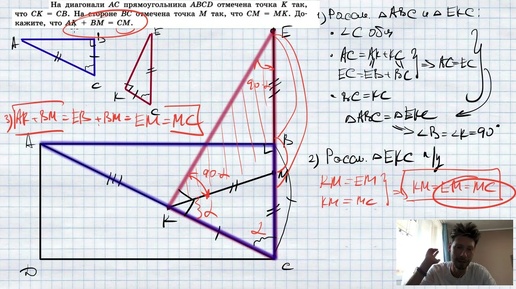 На диагонали AC прямоугольника ABCD отмечена точка K так,
что CK = CB. На стороне BC отмечена точка M так, что CM = MK. До-
кажите, что AK + BM = CM.
A
B
C
E
K
C
3) AK + BM = EB + BM = EM = MC
A
D
E
B
M
K
C
90-α
90-α
α
α
1) Рассм. △ABC и △EKC:
• ∠C общ
• AC = AK + KC
EC = EB + BC
⇒ AC = EC
• BC = KC
△ABC = △EKC
⇒ ∠B = ∠K = 90°
2) Рассм. △EKC п/у
KM = EM
KM = MC
⇒ KM = EM = MC